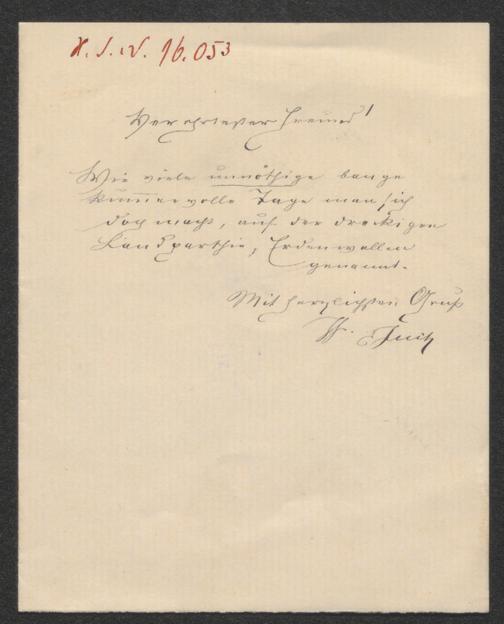 H. I. N. 96.053
Verehrtester Freund!
Wie viele unnöthige bange
kummervolle Tage man sich
doch macht, auf der dreckigen
Landparthie, Erdenwallen
genannt.
Mit herzlichstem Gruß